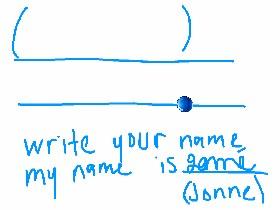 write your name
my name is
(Jonne)